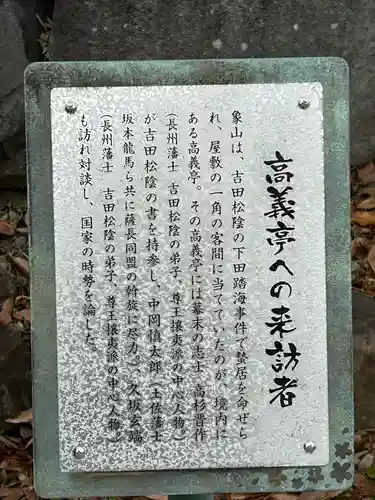 高義亭への来訪者
象山は、吉田松陰の下田踏海事件で蟄居を命ぜら
れ、屋敷の一角の客間に当てていたのが、境内に
ある高義亭。その高義亭には幕末の志士 高杉晋作
(長州藩士 吉田松陰の弟子、尊王攘夷派の中心人物)
が吉田松陰の書を持参し、中岡慎太郎(土佐藩士
坂本龍馬ら共に薩長同盟の斡旋に尽力)、久坂玄瑞
(長州藩士 吉田松陰の弟子、尊王攘夷派の中心人物)
も訪れ対談し、国家の時勢を論じた。